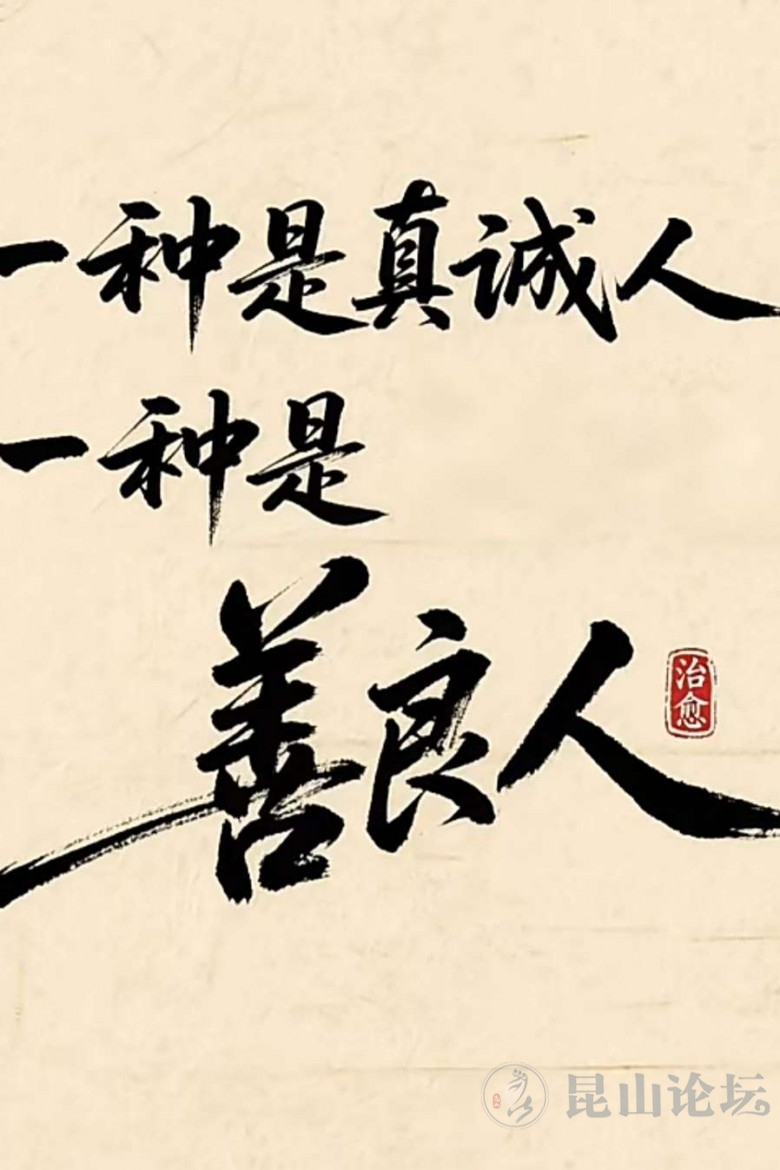 一种是真诚人
一种是
善良人
治愈
昆山论坛